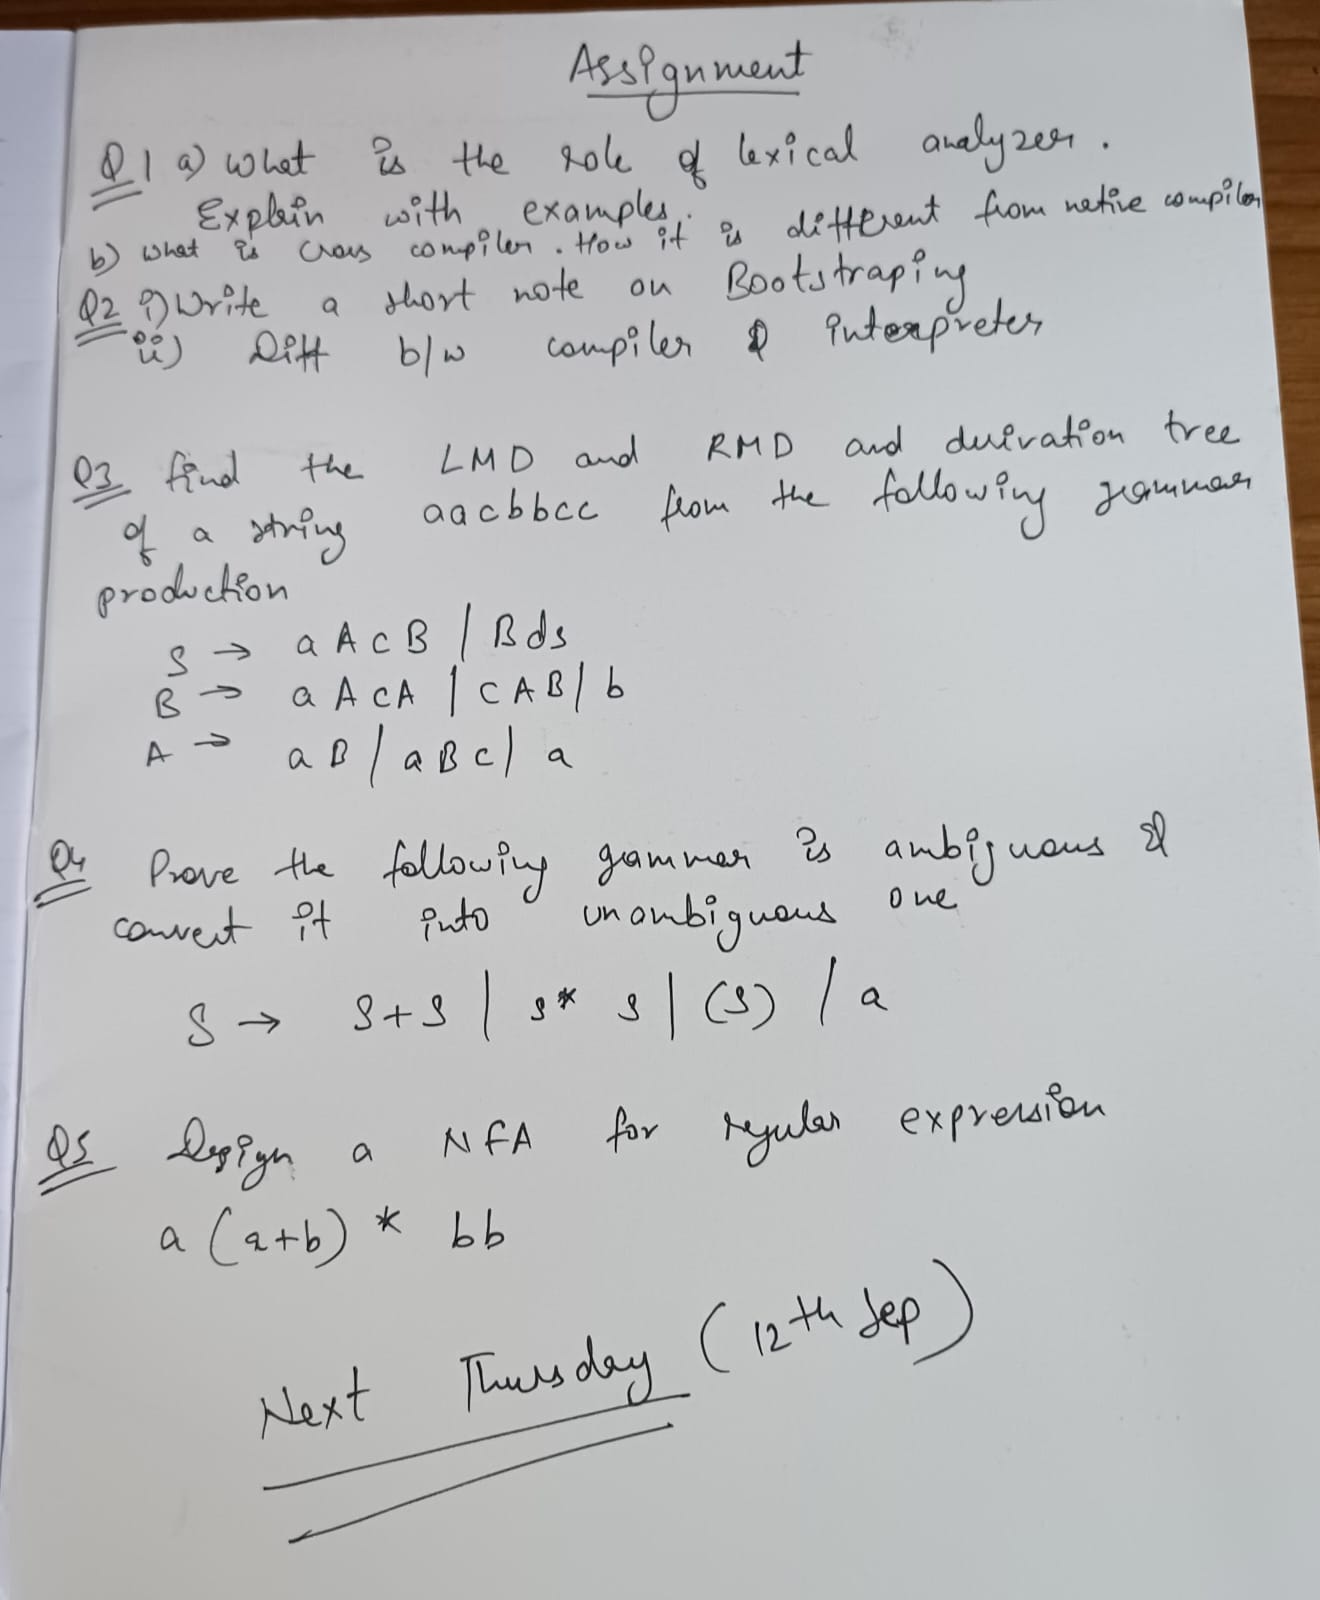 Assignment
Q1 a) What is the role of lexical analyzer.
Explain with examples.
b) What is Cross compiler. How it is different from native compiler
Q2 i) Write a short note on Bootstraping
ii) Diff b/w compiler & interpreter
Q3 find the LMD and RMD and derivation tree
of a string aacbbcc from the following grammar
production
S → aAcB / Bds
B → aAcA | cAB / b
A → aB / aBc / a
Q4 Prove the following gammar is ambiguous &
convert it into unambiguous one
S → S+S | S* S | (S) / a
Q5 Design a NFA for regular expression
a (a+b) * bb
Next Thursday (12th Sep)